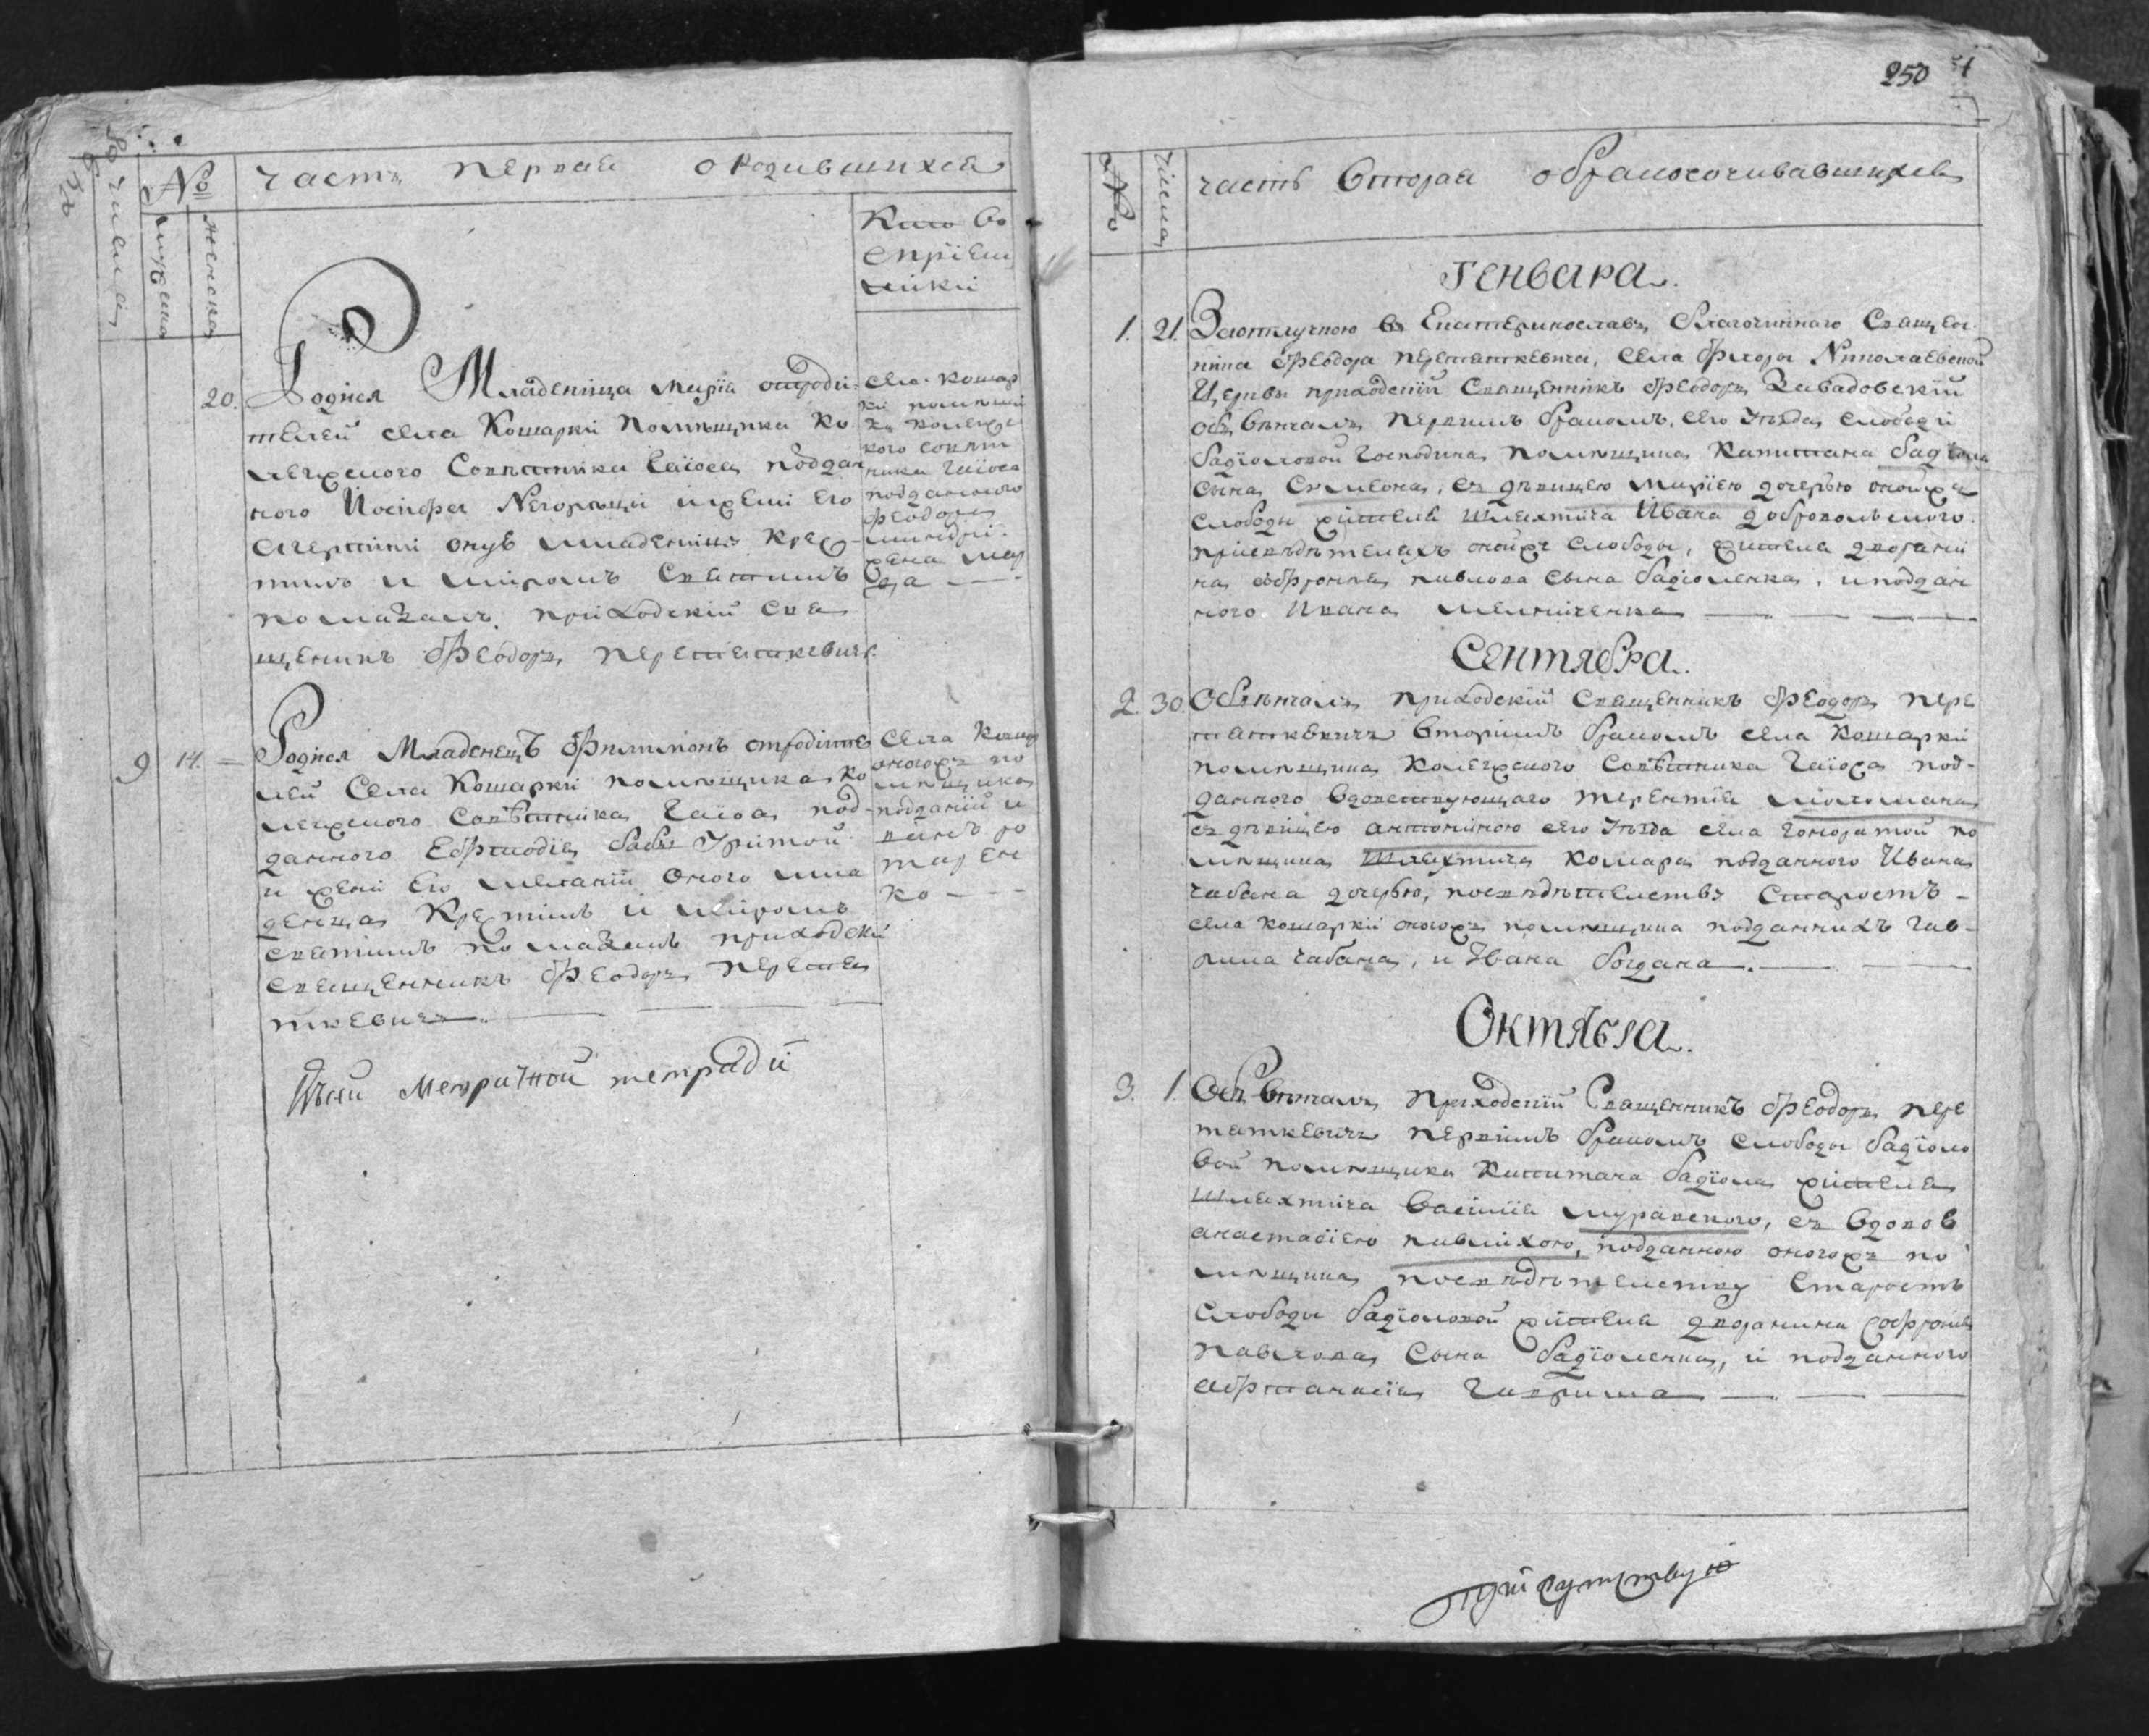 №
числа
мужеска
женска
часть первая о родившихся
Кто во
спріем
ники
20.
Родися Младеница марія отроди
телей села Кошарки помѣщика ко
лежского Совѣтника Гаіоса поддан
ного Иосифа и жени его
оную младеницу крес
тилъ и миромъ Святимъ
помазалъ приходскій Свя
щеникъ Феодоръ перетяткевичъ.
села кошар
ки помѣщи
ка колежс
кого совѣт
ника Гаіоса
подданного
феодора
жена мар
9 14. =
Родися Младенецъ Филимонъ отродите
лей Села Кошарки помѣщика ко
лежского Совѣтника Гаіоса под
данного бабы
и жени его меланіи оного мла
денца Крестилъ и миромъ
святимъ помазалъ приходскій
священникъ Феодоръ перетят
кевичъ.
Села Кошар
оногожъ по
мѣщика
подданій и
ко
Метричной тетради
250
№
числа
часть вторая обракосочивавшихся
Генваря.
1. 21. Заотлучкою въ Екатеринославъ благочинного Священ
ника Феодора перетяткевича, села Флоры Николаевской
Церкви приходскій Священникъ Феодоръ Завадовскій
объ вѣнчалъ первимъ бракомъ, сего уѣзда слободи
бадіоловой Господина помѣщика Капитана бадіола
сына Симеона, съ дѣвицею Маріею дочерью оной же
слободы жителя шляхтича Ивана добровольского.
присвѣдѣтеляхъ онойже слободы, жителя дворяни
на софронія павлова сына бадіоленка, и поддан
ного Ивана мелниченка
Сентября.
2. 30. Обвѣнчалъ приходскій Священникъ Феодоръ пере
тяткевичъ вторимъ бракомъ села Кошарки
помѣщика колежского Совѣтника Гаіоса под-
данного вдовствующаго терентія
съ дѣвицею антониною сего уѣзда села Гоноратой по
мѣщика шляхтича комара подданного Ивана
чабана дочерью, посвѣдѣтелствѣ Старостъ -
села кошарки оногожъ помѣщика подданнихъ Гав-
рила чабана, и Ивана богдана.
Октября.
3. 1. Объ вѣнчалъ Приходскій Священникъ Феодоръ пере
тяткевичъ первимъ бракомъ слободы бадіоло
вой помѣщика Капитана бадіола жителя
шляхтича василія муравского, съ вдовою
анастасіею павликою, подданною оногожъ по
мѣщика посвѣдѣтелству Старостъ
слободы бадіоловой жителя дворянина Софронія
павлова сына бадіоленка, и подданного
афтанасія Гаврила